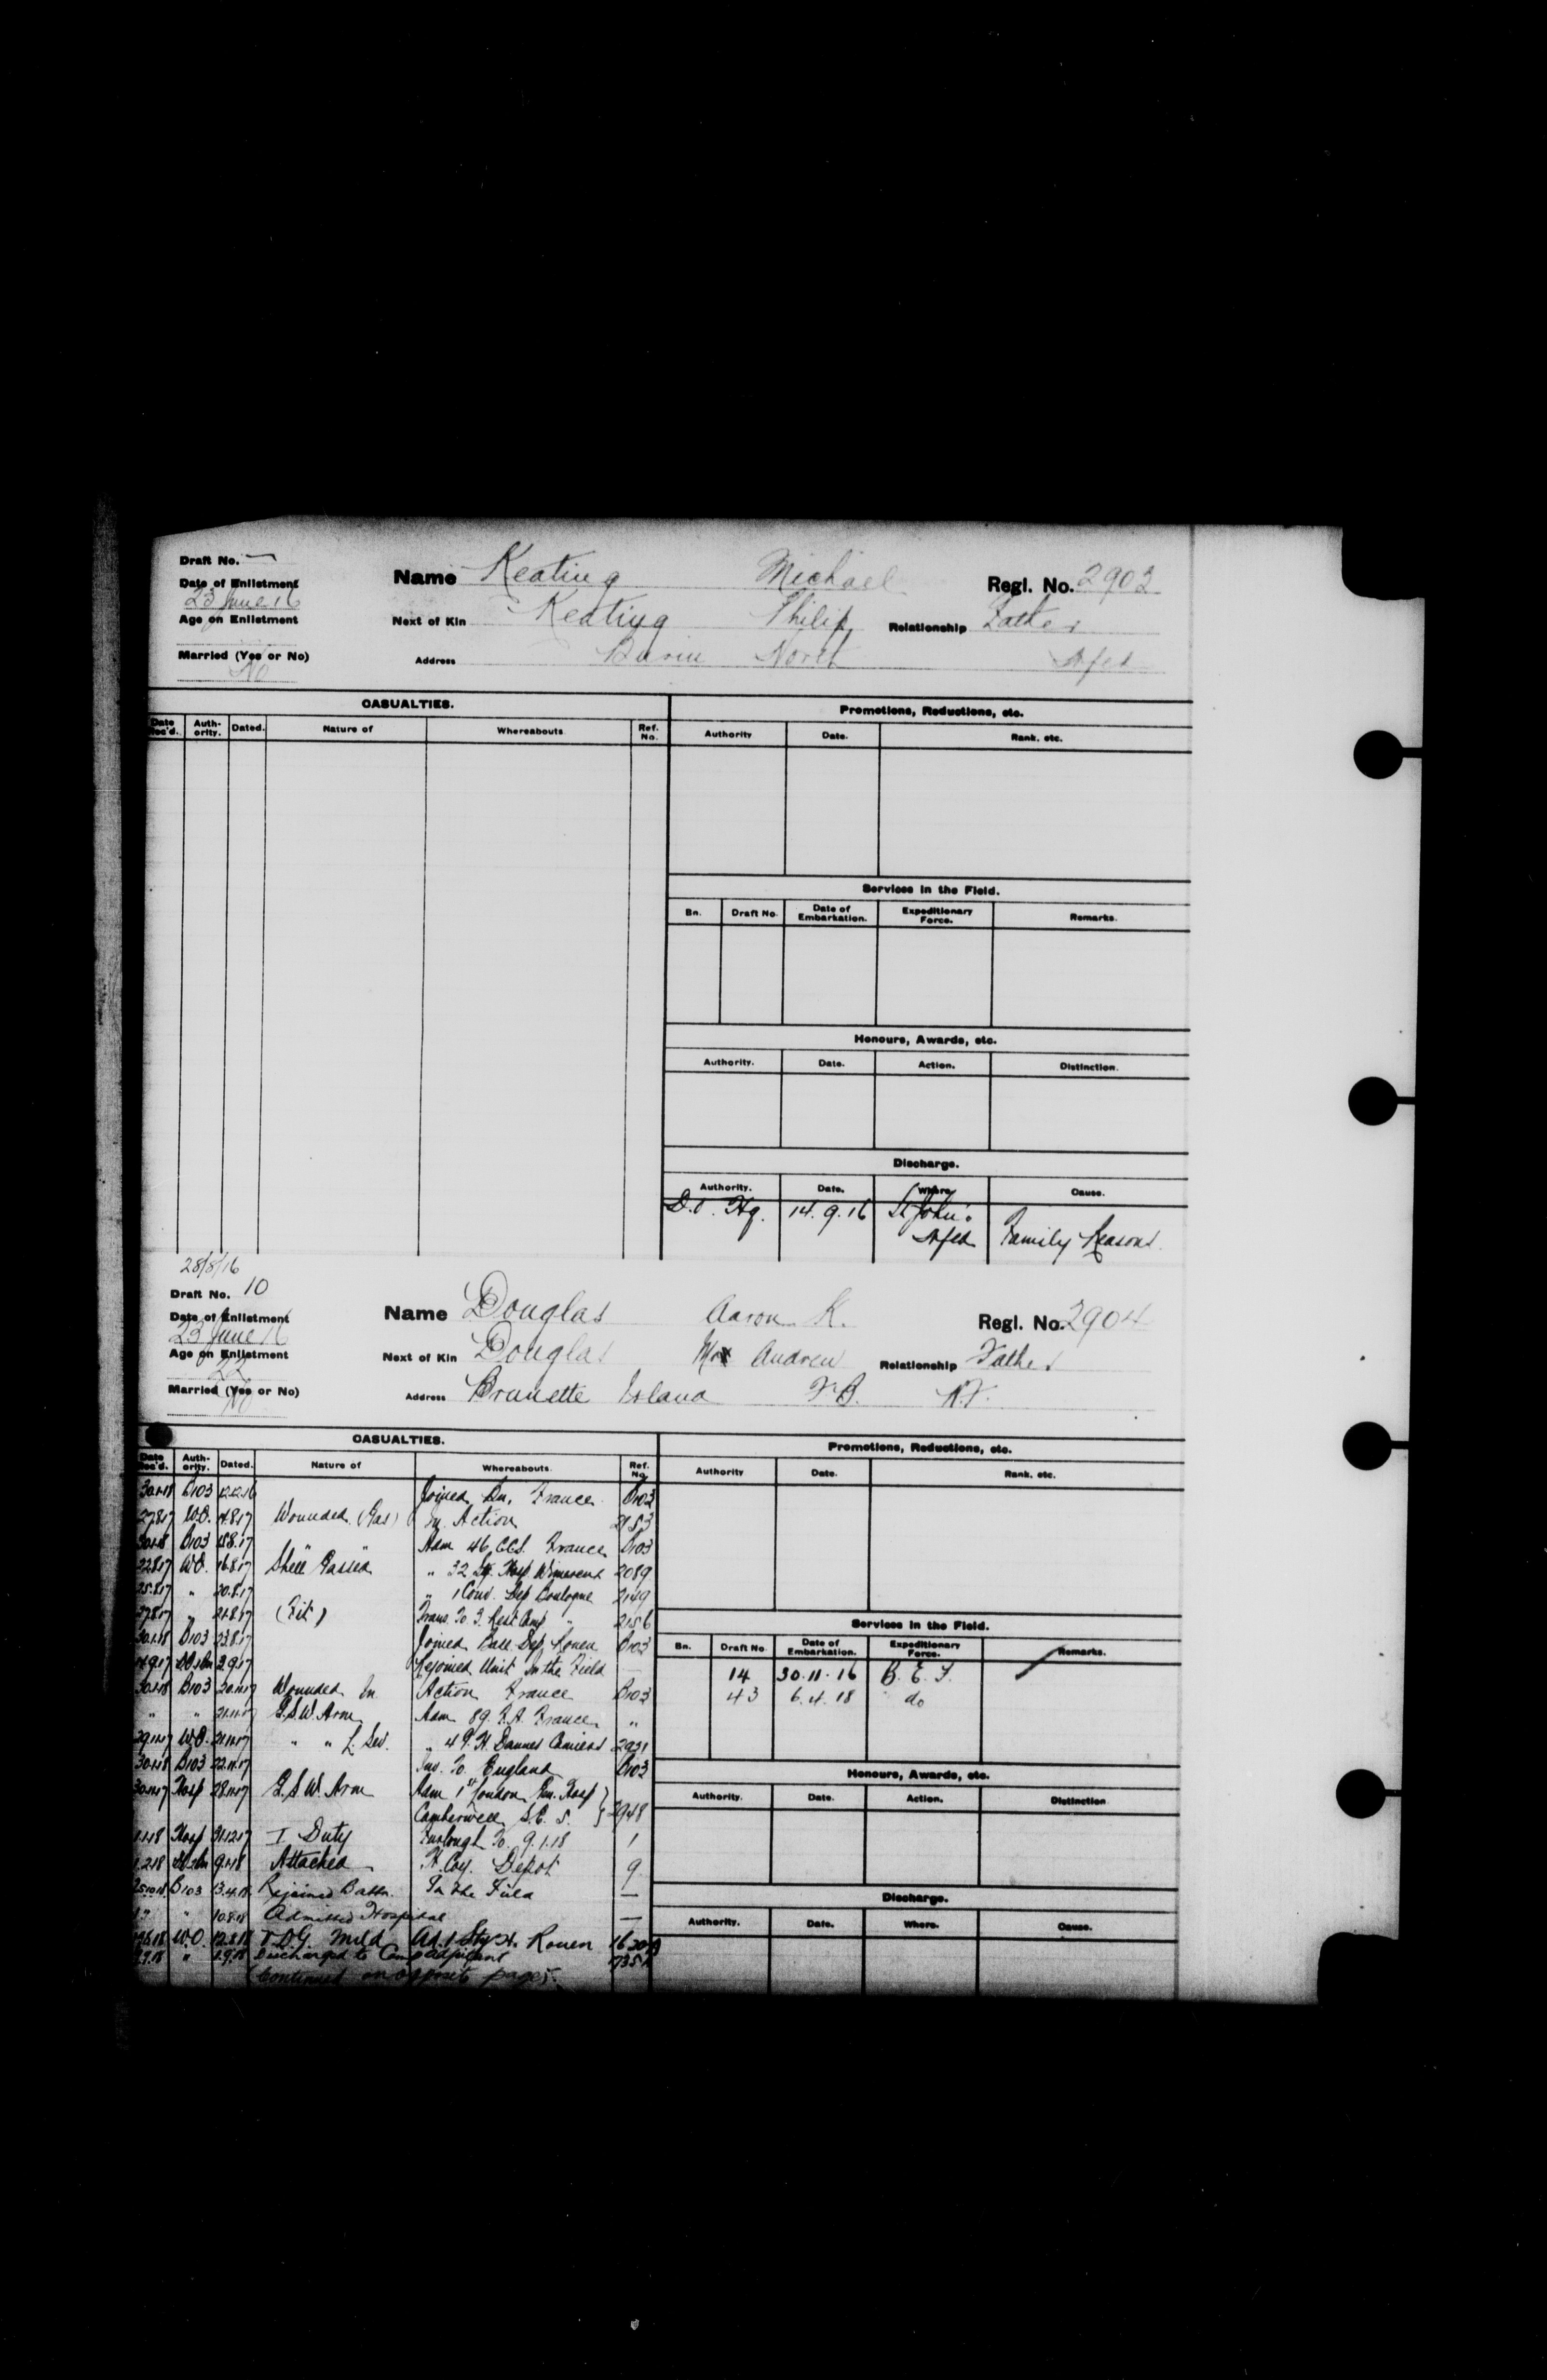 Draft No. —
Date of Enlistment
23 June 16
Age on Enlistment
Married (Yes or No)
No
Name Keating Michael Regl. No. 2903
Next of Kin Keating Philip Relationship Father
Address Burin North Nfld
CASUALTIES.
Date Rec'd. Auth-ority. Dated. Nature of Whereabouts Ref. No.
Promotions, Reductions, etc.
Authority Date. Rank, etc.
Services in the Field.
Bn. Draft No. Date of Embarkation. Expeditionary Force. Remarks.
Honours, Awards, etc.
Authority. Date. Action. Distinction.
Discharge.
Authority. Date. Where Cause.
D.O. Hq. 14.9.16 St John's Nfld Family Reasons.
28/8/16
Draft No. 10
Date of Enlistment
23 June 16
Age on Enlistment
22
Married (Yes or No)
No
Name Douglas Aaron K. Regl. No. 2904
Next of Kin Douglas Mr Andrew Relationship Father
Address Brunette Island F.B. N.F.
CASUALTIES.
Date Rec'd. Auth-ority. Dated. Nature of Whereabouts. Ref. No.
30.1.18 B103 12.12.16 Joined Bn. France B103
27.8.17 W.O. 14.8.17 Wounded (Gas) In Action 2153
30.1.18 B103 15.8.17 " " Adm 46 CCS. France B103
22.8.17 W.O. 16.8.17 Shell Gassed " 32 St. Hosp. Wimereux 2089
25.8.17 " 20.8.17 " 1 Conv. Dep Boulogne 2149
27.8.17 " 21.8.17 (Fit) Trans To 3. Rest Camp " 2156
30.1.18 B103 23.8.17 Joined Base Dep. Rouen B103
2.9.17 Rejoined Unit In the Field —
30.1.18 B103 20.11.17 Wounded In Action France B103
" " 21.11.17 G.S.W. Arm Adm 89. F.A. France "
29.11.17 W.O. 21.11.17 " " L. Sev. " 4 G.H. Dannes Camiers 2931
30.1.18 B103 22.11.17 Inv. To. England B103
30.11.17 Hosp 28.11.17 G.S.W. Arm Adm 1st London Gen. Hosp
Camberwell S.E. 5. 2948
Hosp 31.12.17 I Duty Furlough To. 9.1.18 1
9.1.18 Attached H. Coy. Depot 9
25.10.18 B103 13.4.18 Rejoined Battn. In the Field —
" 10.8.18 Admitted Hospital —
W.O. 12.8.18 Mild Ad. 1 Sty H. Rouen
" 1.9.18 Discharged to Camp Adjutant
(Continued on opposite page).
Promotions, Reductions, etc.
Authority Date. Rank, etc.
Services in the Field.
Bn. Draft No. Date of Embarkation. Expeditionary Force. Remarks.
14 30.11.16 B.E.F.
43 6.4.18 do
Honours, Awards, etc.
Authority. Date. Action. Distinction
Discharge.
Authority. Date. Where. Cause.